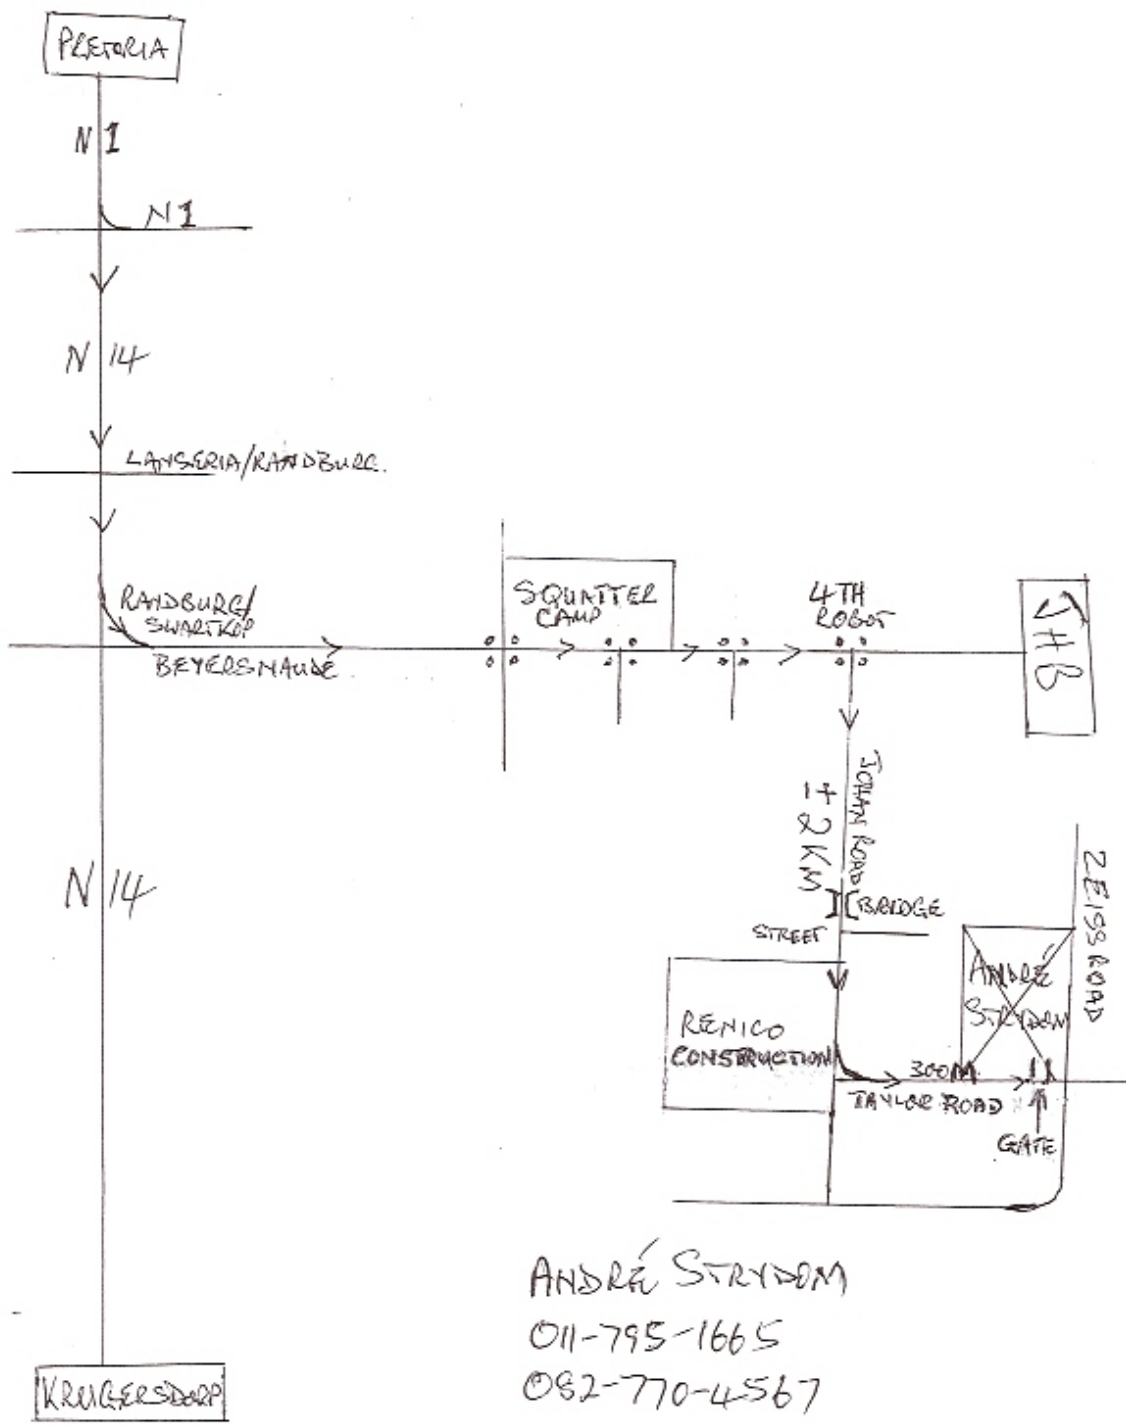 PRETORIA
N 1
N1
N 14
LANSERIA/RANDBURG.
RANDBURG/
SWARTKOP
BEYERSNAUDE
SQUATTER
CAMP
4TH
ROBOT
JHB
JOHAN ROAD
± 2 KM
BRIDGE
STREET
ZEISS ROAD
ANDRÉ
STRYDOM
RENICO
CONSTRUCTION
300M
TAYLOR ROAD
GATE
N 14
ANDRÉ STRYDOM
011-795-1665
082-770-4567
KRUGERSDORP